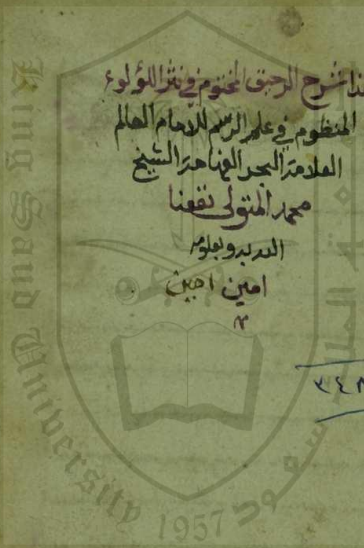 هذا شرح الرحيق المختوم في نثر اللؤلوء
المنظوم في علم الرسم للامام العالم
العلامة البحر الفهامة الشيخ
محمد المتولى نفعنا
الله به وبعلومه
امين امين
م
King Saud University
1957